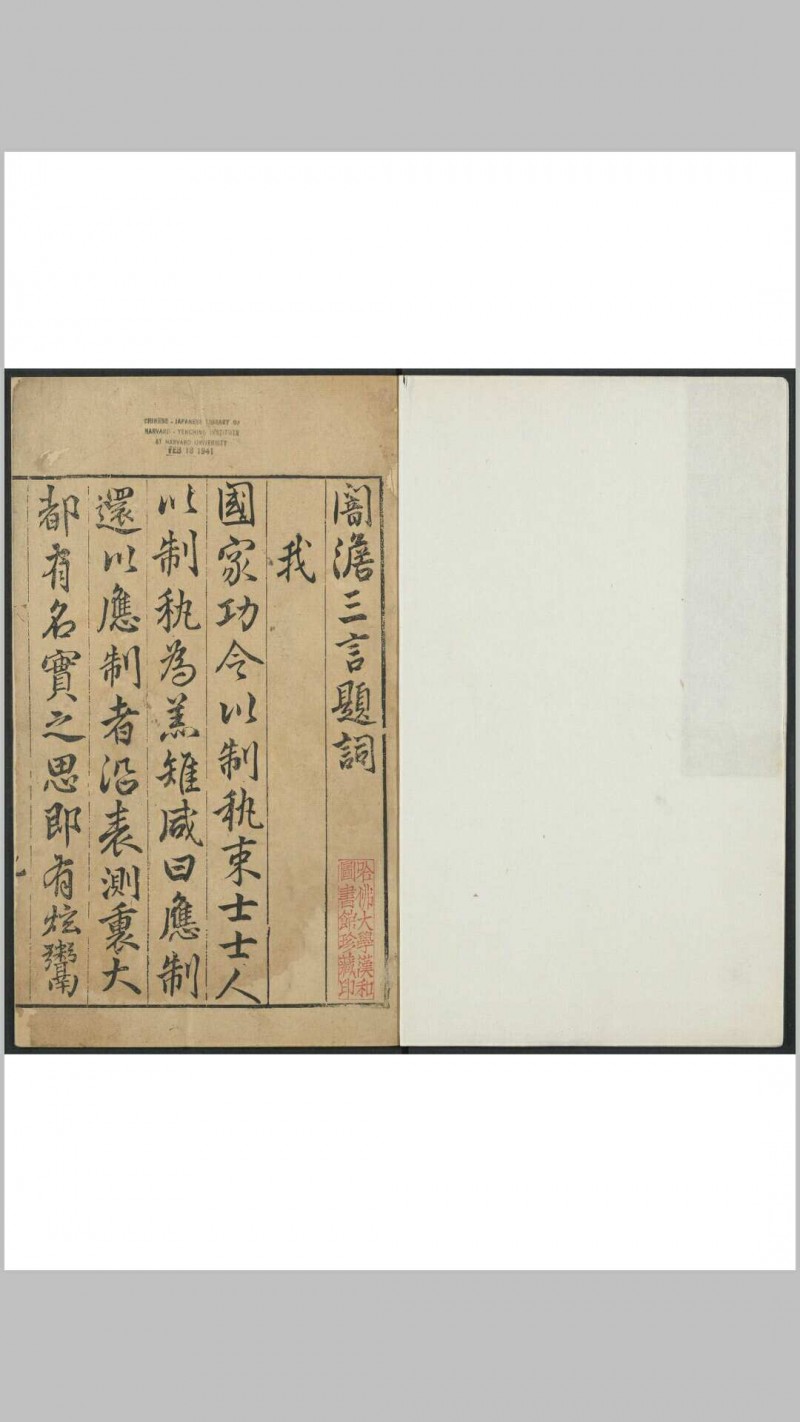 闇澹三言題詞
我
國家功令以制秇束士士人
以制秇為羔雉咸曰應制
還以應制者沿表測裏大
都有名實之思即有炫鬻
哈佛大學漢和
圖書館珍藏印
CHINESE - JAPANESE LIBRARY OF
HARVARD - YENCHING INSTITUTE
AT HARVARD UNIVERSITY
FEB 10 1941